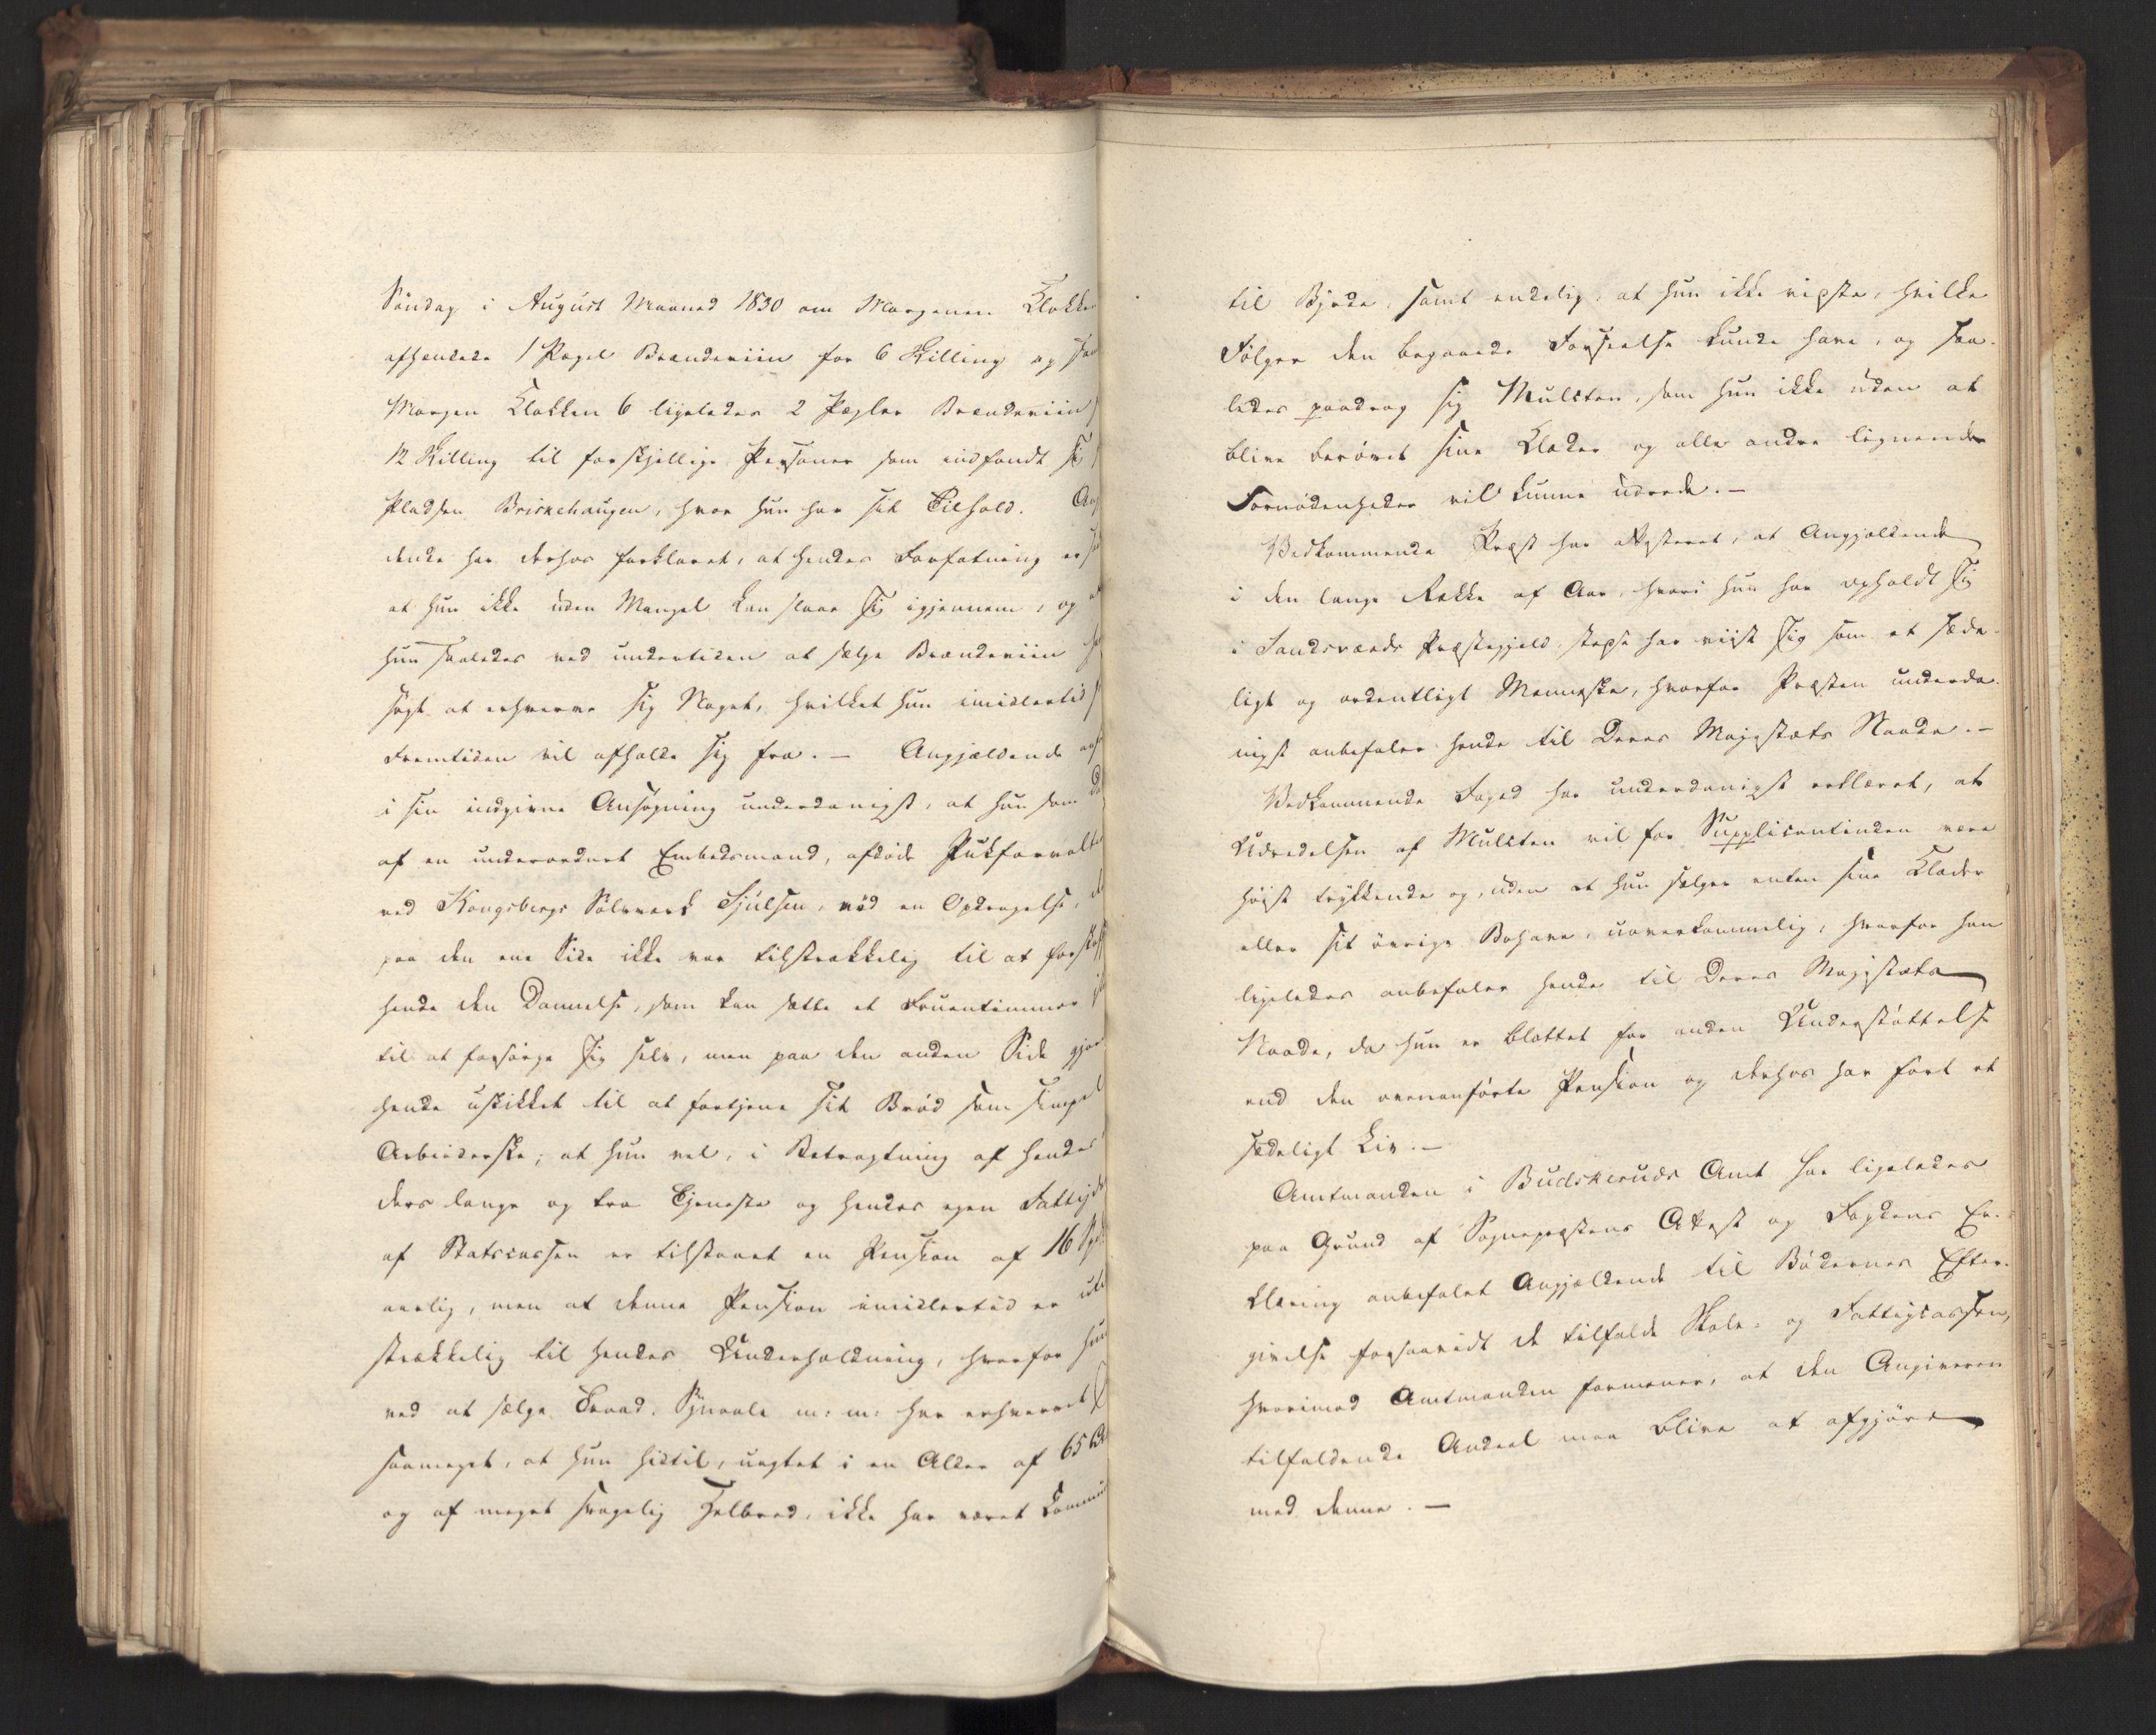 Söndag i August Maaned 1830 om Morgenen Klokken
afhændede 1 Pægel Brændeviin for 6 Skilling og
Morgen Klokken 6 ligeledes 2 Pægler Brændeviin
12 Skilling til forskjellige Personer som indfandt sig
Pladsen Briskehaugen, hvor hun har sit Tilhold. Ang
dende har derhos forklaret, at hendes Forfatning er
at hun ikke uden Mangel kan slaae sig igjennem, og
hun saaledes ved undertiden at sælge Brændeviin
søgt at erhverve sig Noget, hvilket hun imidlertid
Fremtiden vil afholde sig fra. — Angjældende
i sin indgivne Ansøgning underdanigst, at hun som
af en underordnet Embedsmand, afdøde Pukforvalter
ved Kongsbergs Sölvværk Hjulsen, nød en Opdragelse,
paa den ene Side ikke var tilstrækkelig til at forskaffe
hende den Dannelse, som kan sætte et Fruentimmer
til at forsørge sig selv, men paa den anden Side gjør
hende uskikket til at fortjene sit Brød som simpel
Arbeiderske; at hun vel, i Betragtning af hendes
ders lange og tro Tjeneste og hendes egen Fattigdom
af Statscassen er tilstaaet en Pension af 16 Spd
aarlig, men at denne Pension imidlertid er util
strækkelig til hendes Underholdning, hvorfor hun
ved at sælge Traad, Synaale m: m: har erhvervet
saameget, at hun hidtil, uagtet i en Alder af 65 Aar
og af meget svagelig Helbred, ikke har været Commun
til Byrde, samt endelig, at hun ikke vidste, hvilke
Følger den begaaede Forseelse kunde have, og saa-
ledes paadrog sig Mulcten, som hun ikke uden at
blive berøvet sine Klæder og alle andre lignende
Fornødenheder vil kunne udrede. —
Vedkommende Præst har attesteret, at Angjældende
i den lange Række af Aar, hvori hun har opholdt sig
i Sandsværds Præstegjeld, stedse har viist sig som et sæde-
ligt og ordentligt Menneske, hvorfor Præsten underda-
nigst anbefaler hende til Deres Majestæts Naade. —
Vedkommende Foged har underdanigst erklæret, at
Udredelsen af Mulcten vil for Supplicantinden være
høist trykkende og, uden at hun sælger enten sine Klæder
eller sit øvrige Bohave, uoverkommelig, hvorfor han
ligeledes anbefaler hende til Deres Majestæts
Naade, da hun er blottet for anden Understøttelse
end den ovenanførte Pension og derhos har ført et
sædeligt Liv. —
Amtmanden i Budskeruds Amt har ligeledes
paa Grund af Sognepræstens Attest og Fogdens Er-
klæring anbefalet Angjældende til Bødernes Efter-
givelse forsaavidt de tilfalde Skole- og Fattigcassen,
hvorimod Amtmanden formener, at den Angiveren
tilfaldende Andeel maa blive at afgjøre
med denne. —